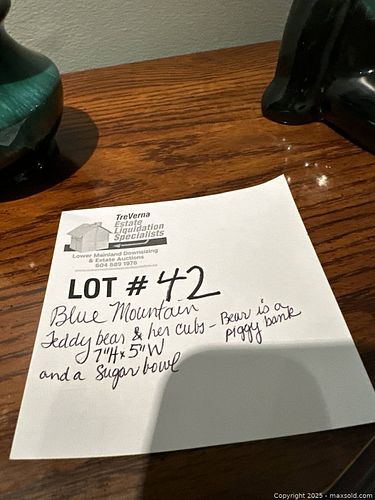 TreVerna
Estate
Liquidation
Specialists
Lower Mainland Downsizing
& Estate Auctions
604 889 1976
LOT # 42
Blue Mountain
Teddy bear & her cubs - Bear is a
piggy bank
7"H x 5"W
and a Sugar bowl
Copyright 2025 - maxsold.com